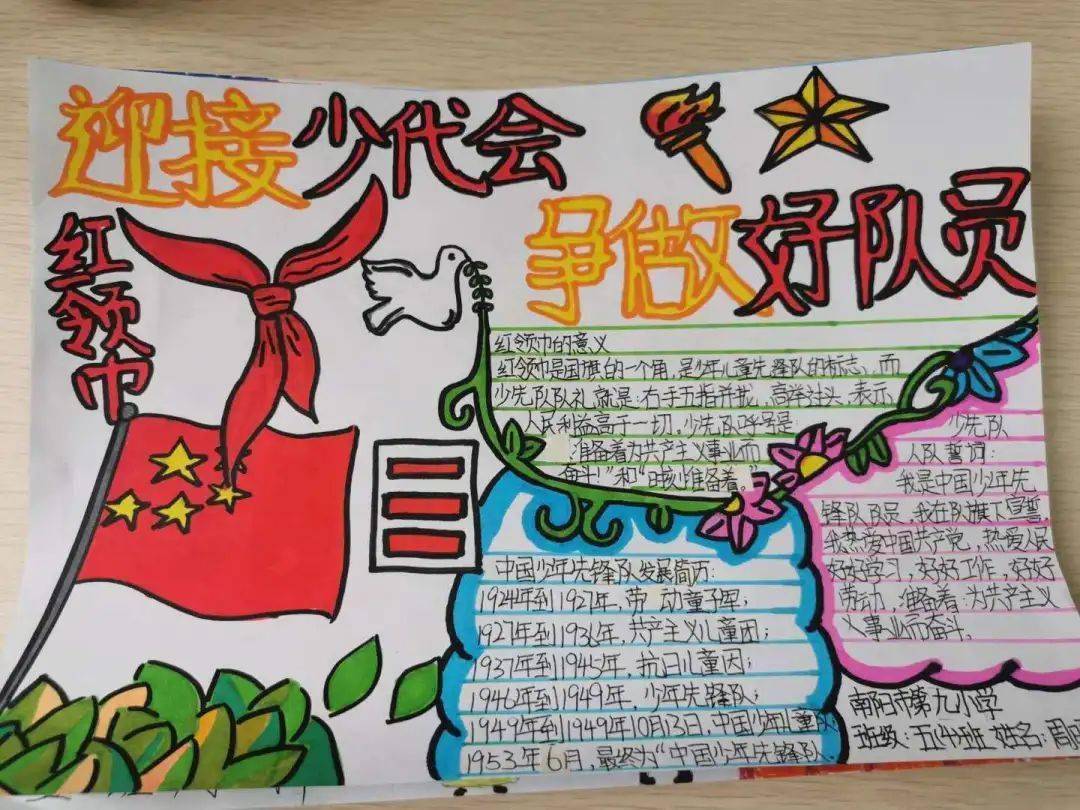 迎接少代会
争做好队员
红领巾
红领巾的意义
红领巾是国旗的一个角,是少年儿童先锋队的标志,而
少先队队礼就是:右手五指并拢,高举过头,表示
人民利益高于一切,少先队呼号是
准备着为共产主义事业而
奋斗!"和"时刻准备着。"
少先队
入队誓词:
我是中国少年先
锋队队员,我在队旗下宣誓,
我热爱中国共产党,热爱人民
好好学习,好好工作,好好
劳动,准备着:为共产主义
义事业而奋斗.
中国少年先锋队发展简历:
1924年到1927年,劳动童子军;
1927年到1936年,共产主义儿童团;
1937年到1945年,抗日儿童团;
1946年到1949年,少年先锋队;
1949年到1949年10月13日,中国少年儿童队
1953年6月,最终为"中国少年先锋队.
南阳市第九小学
班级:五(4)班 姓名:周